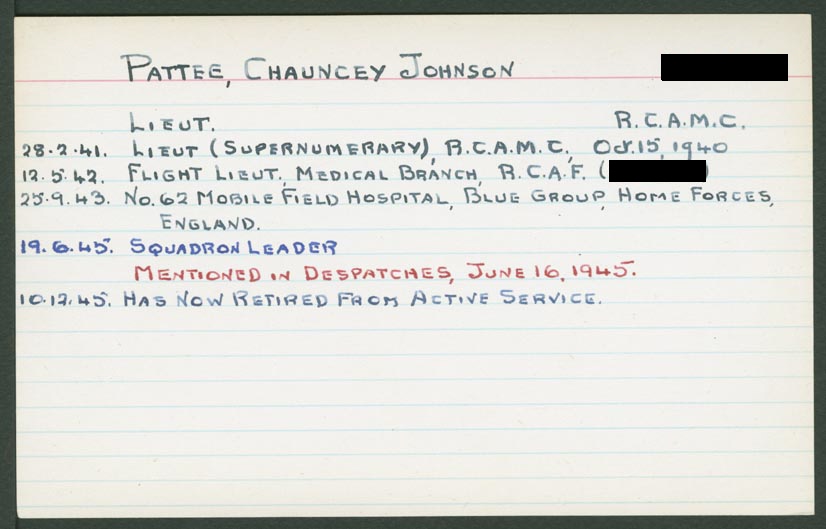 PATTEE, CHAUNCEY JOHNSON
LIEUT. R.C.A.M.C.
28.2.41. LIEUT (SUPERNUMERARY), R.C.A.M.C., OCT.15, 1940
12.5.42. FLIGHT LIEUT, MEDICAL BRANCH, R.C.A.F. ( )
25.9.43. NO.62 MOBILE FIELD HOSPITAL, BLUE GROUP, HOME FORCES,
ENGLAND.
19.6.45. SQUADRON LEADER
MENTIONED IN DESPATCHES, JUNE 16, 1945.
10.12.45. HAS NOW RETIRED FROM ACTIVE SERVICE.